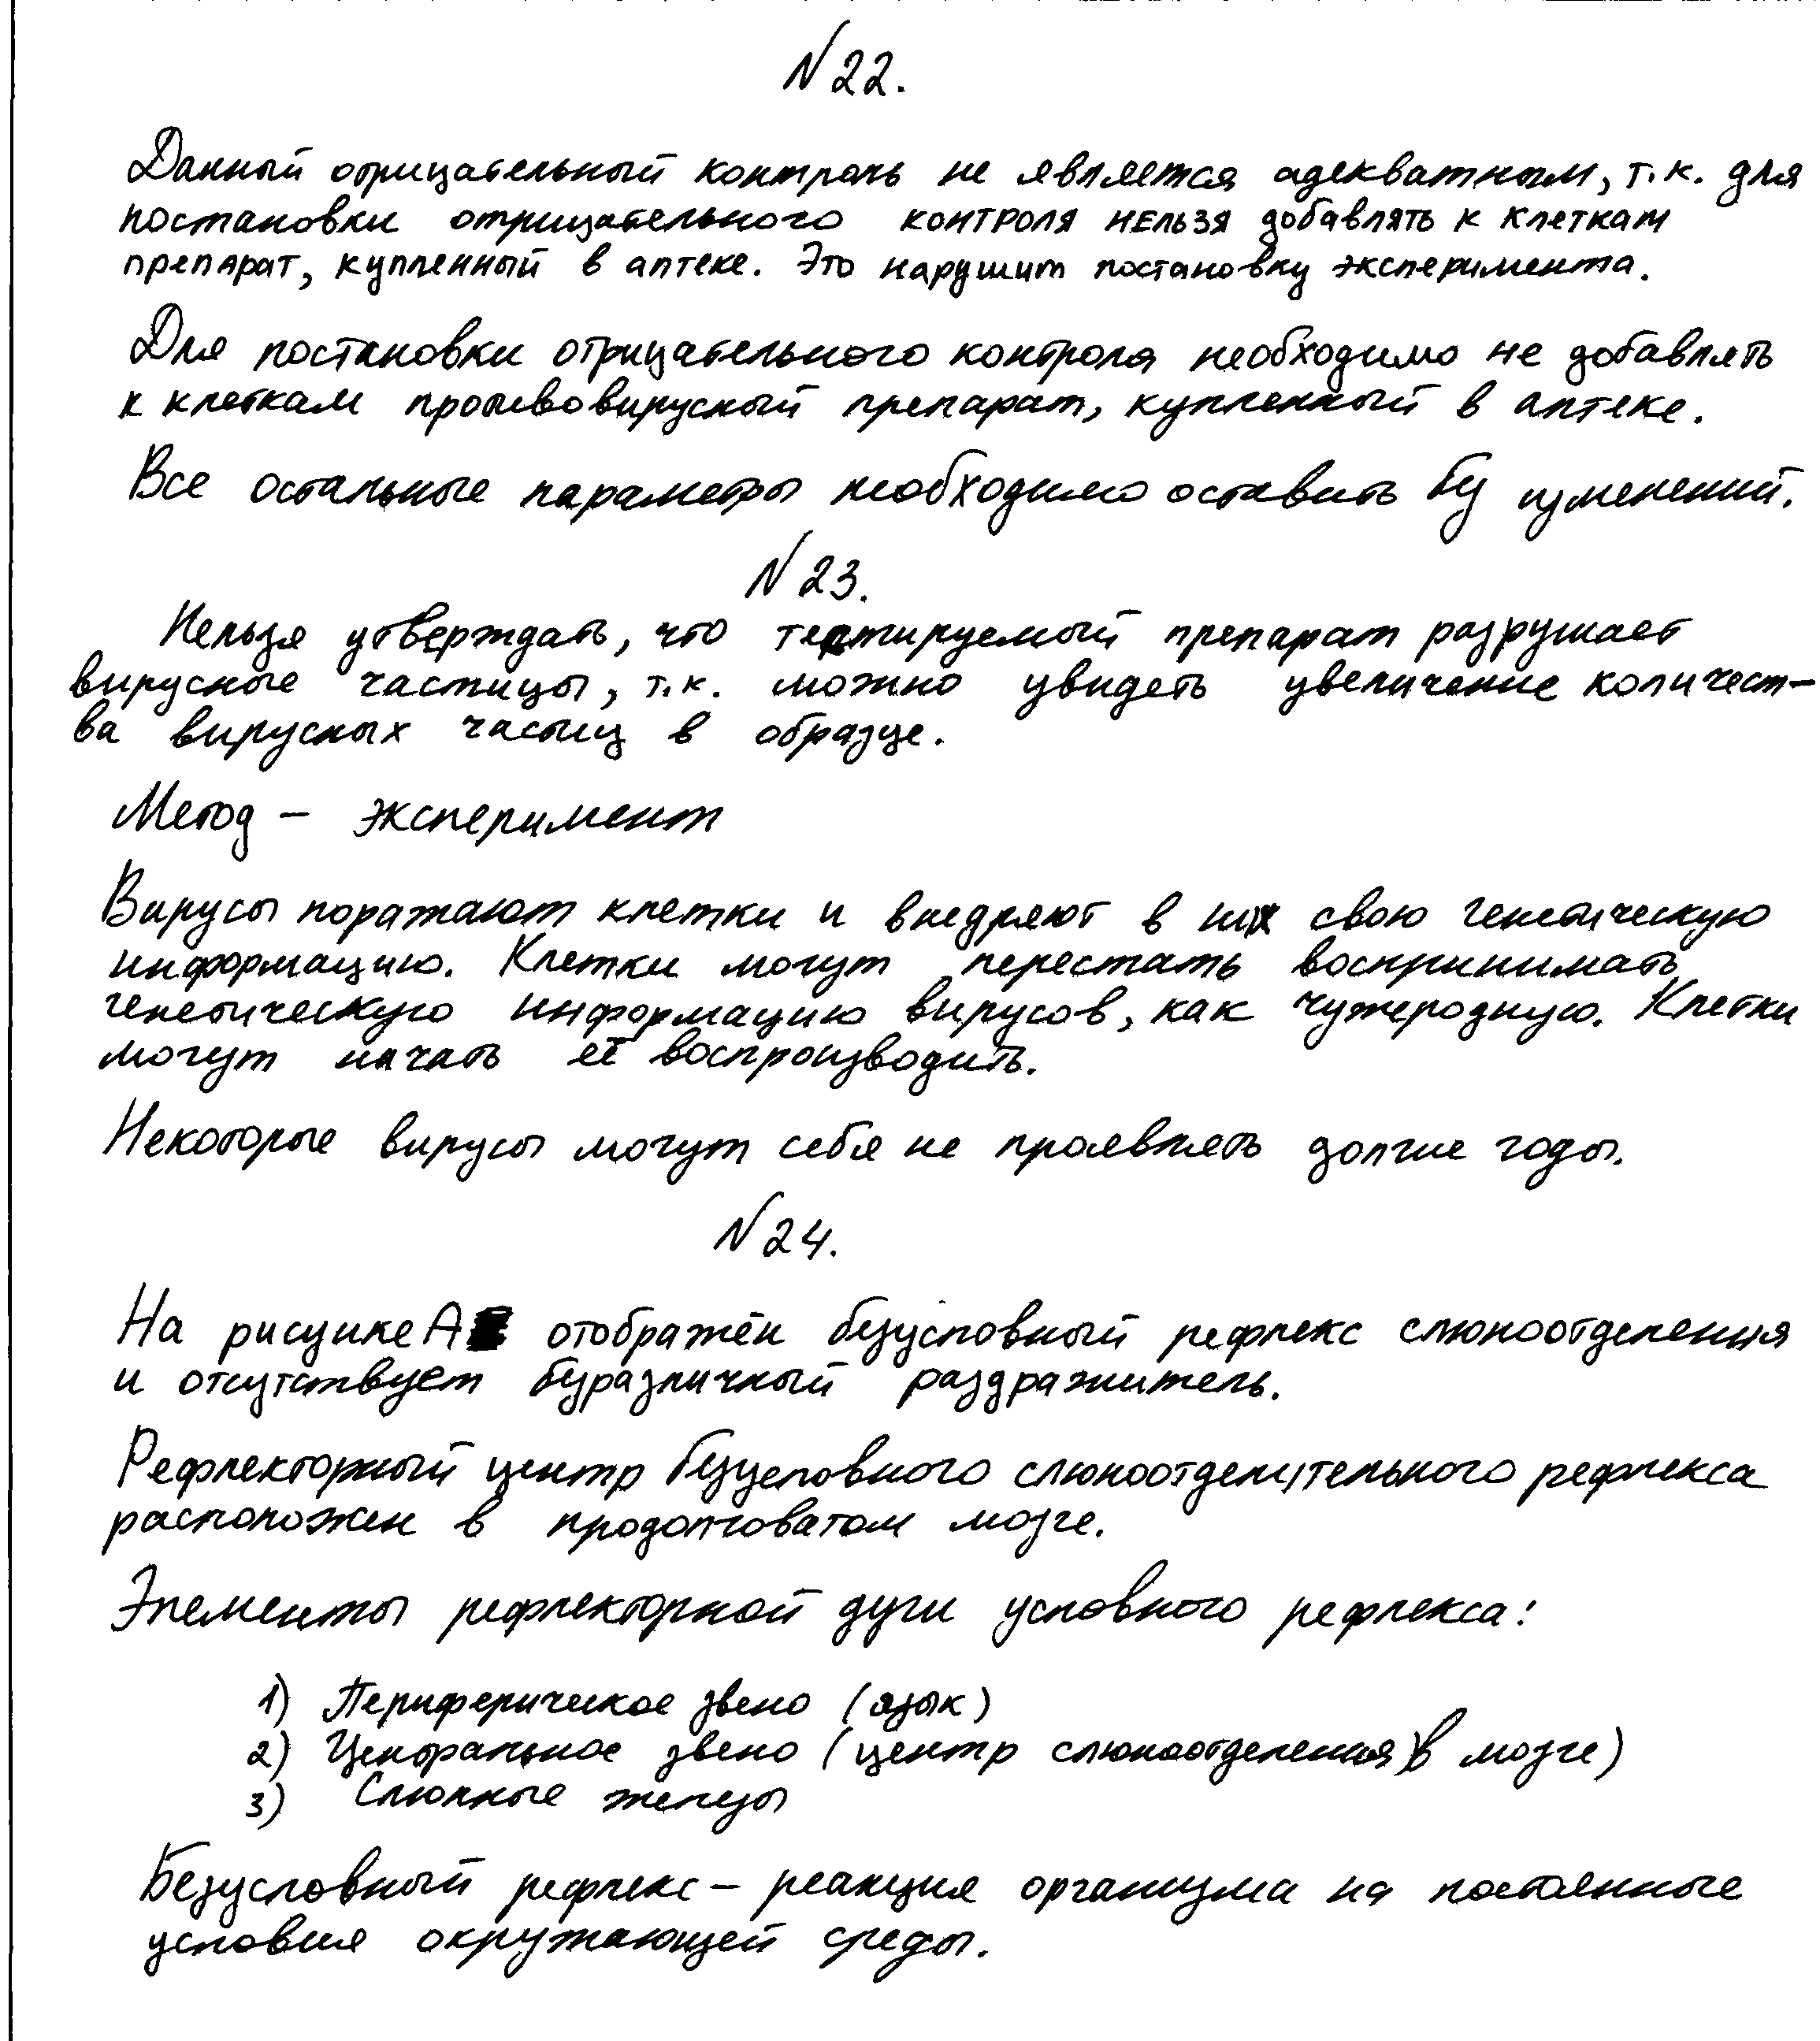 №22.
Данный отрицательный контроль не является адекватным, т.к. для
постановки отрицательного контроля нельзя добавлять к клеткам
препарат, купленный в аптеке. Это нарушит постановку эксперимента.
Для постановки отрицательного контроля необходимо не добавлять
к клеткам противовирусный препарат, купленный в аптеке.
Все остальные параметры необходимо оставить без изменений.
№23.
Нельзя утверждать, что тестируемый препарат разрушает
вирусные частицы, т.к. можно увидеть увеличение количест-
ва вирусных частиц в образце.
Метод - эксперимент
Вирусы поражают клетки и внедряют в них свою генетическую
информацию. Клетки могут перестать воспринимать
генетическую информацию вирусов, как чужеродную. Клетки
могут начать её воспроизводить.
Некоторые вирусы могут себя не проявлять долгие годы.
№24.
На рисунке А отображён безусловный рефлекс слюноотделения
и отсутствует безразличный раздражитель.
Рефлекторный центр безусловного слюноотделительного рефлекса
расположен в продолговатом мозге.
Элементы рефлекторной дуги условного рефлекса:
1) Периферическое звено (язык)
2) Центральное звено (центр слюноотделения) в мозге)
3) Слюнные железы
Безусловный рефлекс - реакция организма на постоянные
условия окружающей среды.